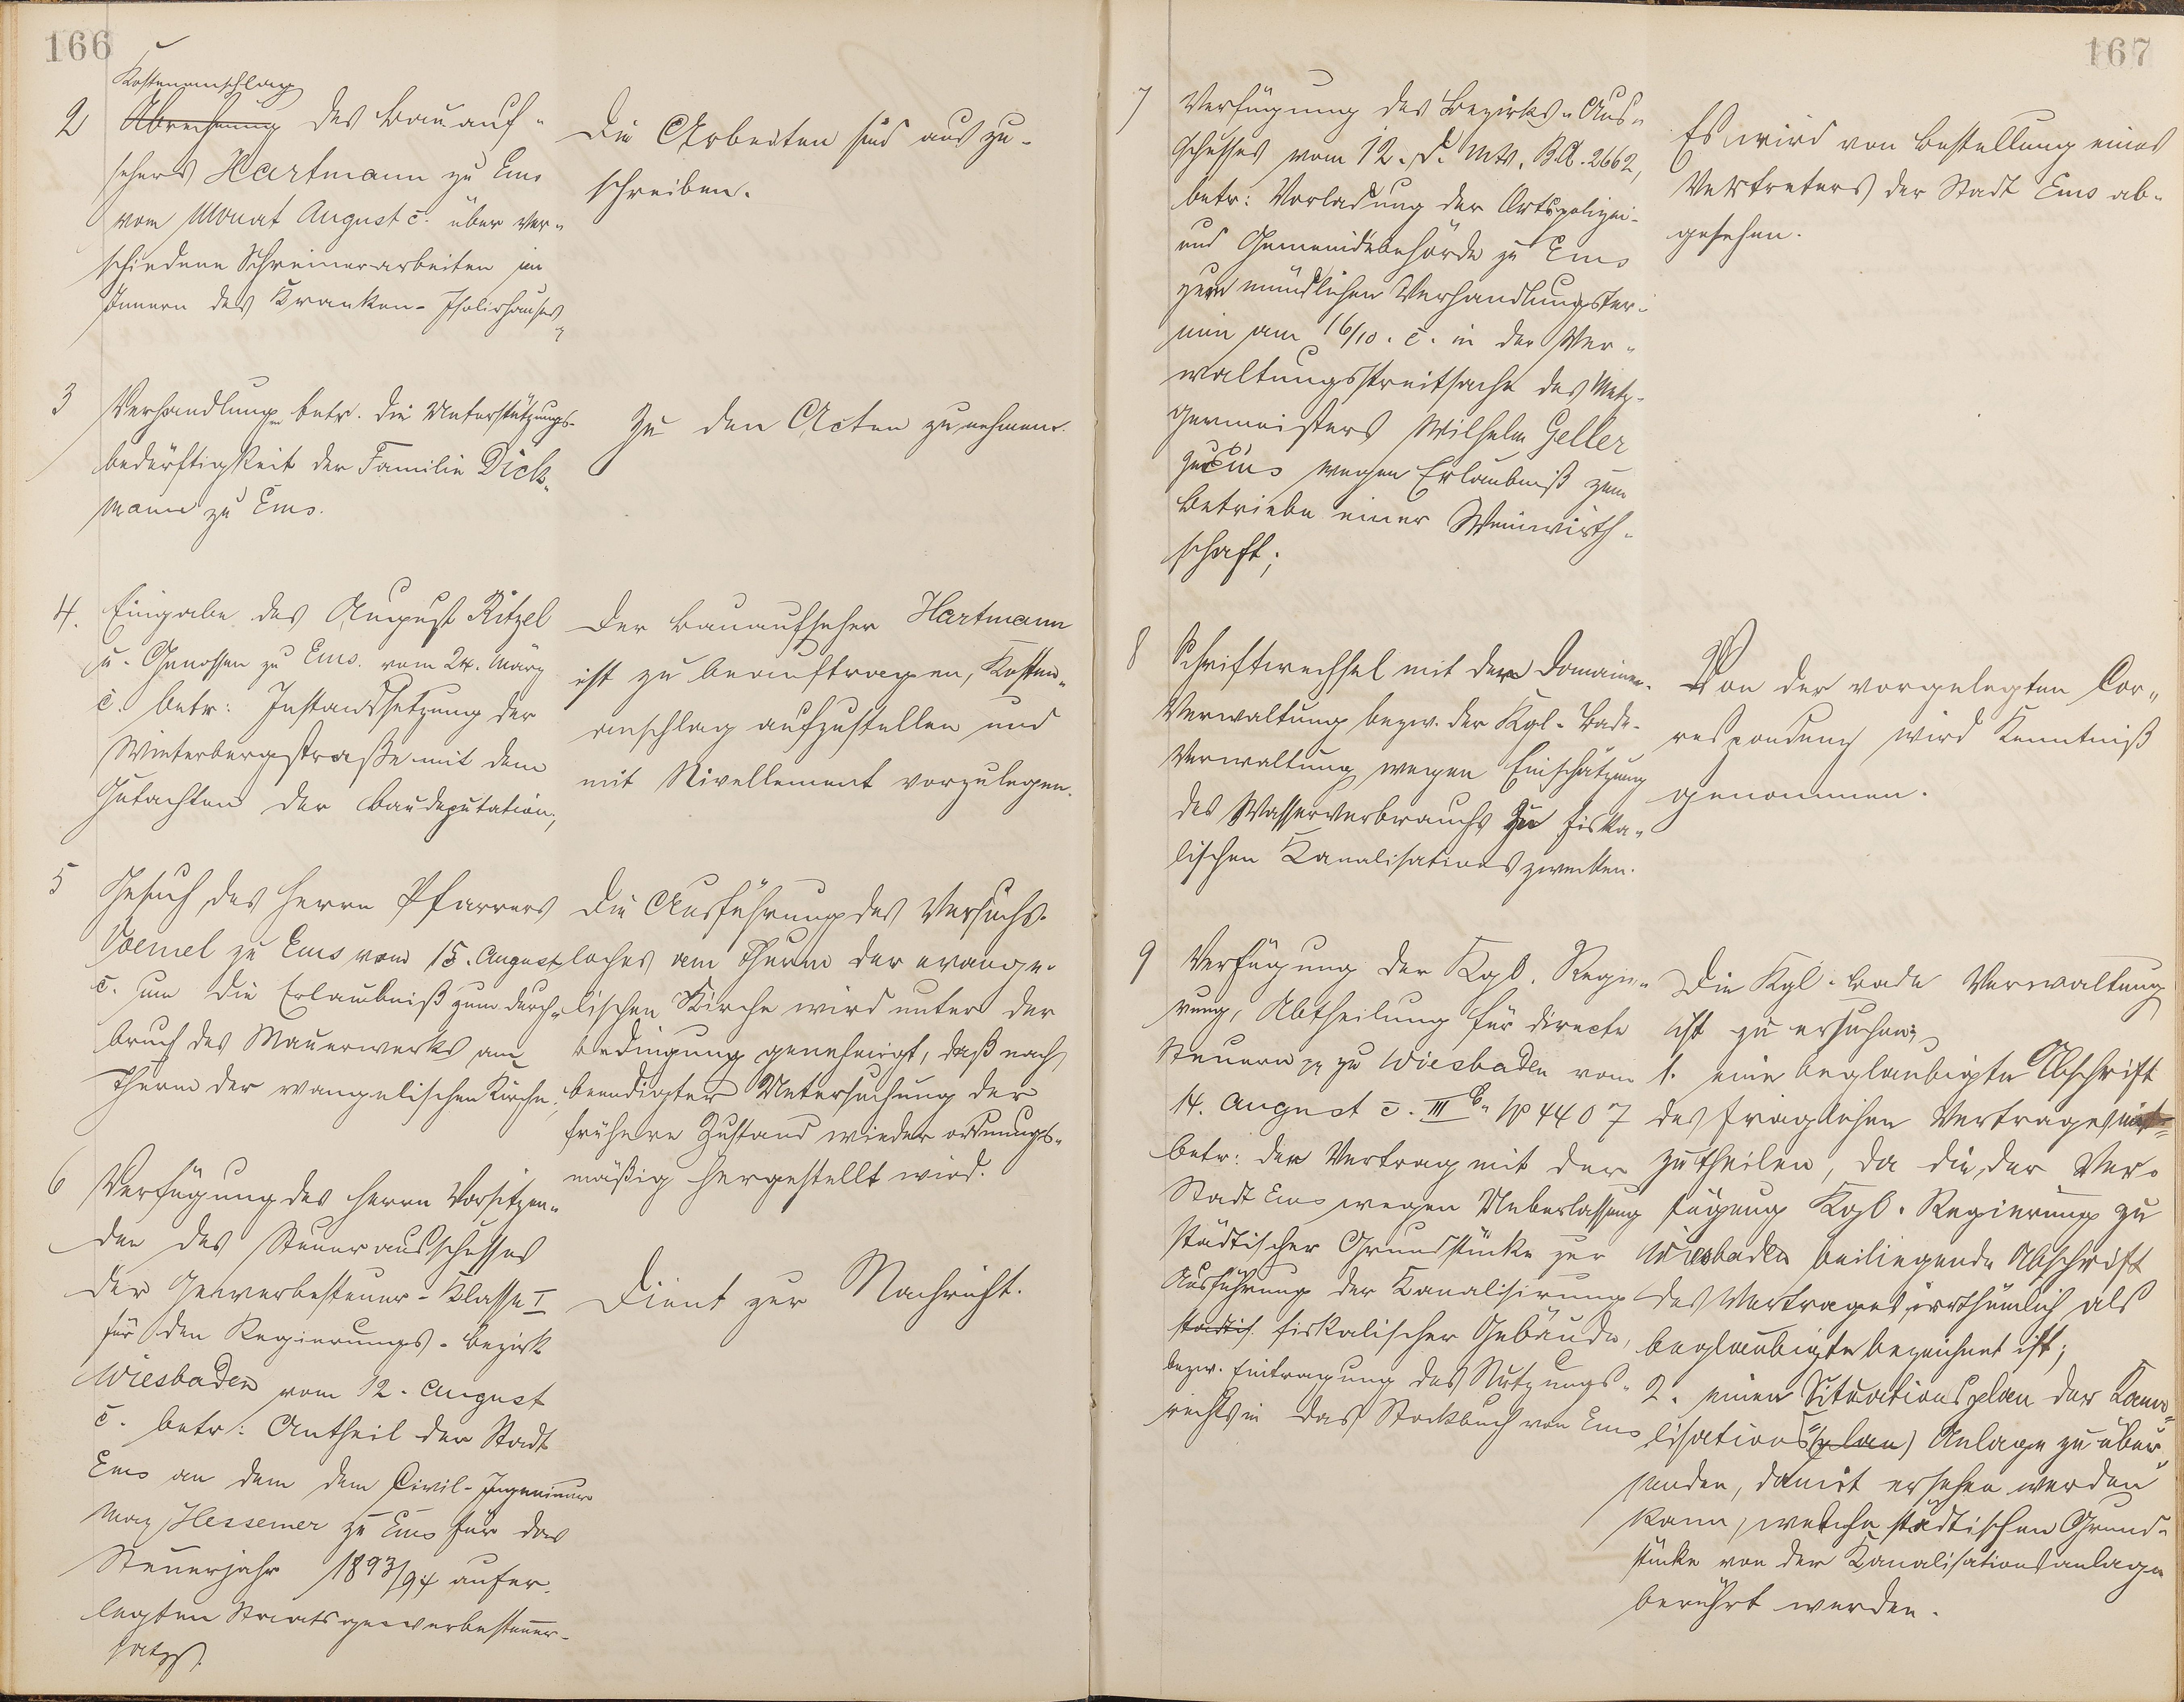 166
Kostenanschlag
2 Abrechnung des Bauauf-
sehers Hartmann zu Ems
vom Monat August c. über ver-
schiedene Schreinerarbeiten im
Innern des Kranken-Isolirhauses
Die Arbeiten sind auszu-
schreiben.
3 Verhandlungen betr. die Unterstützungs-
bedürftigkeit der Familie Dick-
mann zu Ems.
Zu den Acten zu nehmen.
4. Eingabe des August Ritzel
u. Genossen zu Ems. vom 24. März
c. betr: Instandsetzung der
Winterbergstraße mit dem
Gutachten der Baudeputation;
Der Bauaufseher Hartmann
ist zu beauftragen, Kosten-
anschlag aufzustellen und
mit Nivellement vorzulegen.
5 Gesuch des Herrn Pfarrers
Voemel zu Ems vom 15. August
c. um die Erlaubniß zum Durch-
bruch des Mauerwerks am
Thurm der evangelischen Kirche;
Die Ausführung des Versuchs-
loches am Thurm der evange-
lischen Kirche wird unter der
Bedingung genehmigt, daß nach
beendigter Untersuchung der
frühere Zustand wieder ordnungs-
mäßig hergestellt wird.
6 Verfügung des Herrn Vorsitzen-
den des Steuerausschusses
der Gewerbesteuer-Klasse I
für den Regierungs-Bezirk
Wiesbaden vom 12. August
c. betr: Antheil der Stadt
Ems an dem dem Civil-Ingenieur
Max Hessemer zu Ems für das
Steuerjahr 1893/94 aufer-
legten Staatsgewerbesteuer-
satzes.
Dient zur Nachricht.
167
7 Verfügung des Bezirks-Aus-
schusses vom 12. d. Mts. B.A. 2662,
betr: Vorladung der Ortspolizei-
und Gemeindebehörde zu Ems
zum mündlichen Verhandlungster-
min am 16/10. c. in der Ver-
waltungsstreitsache des Metz-
germeisters Wilhelm Geller
zu Ems wegen Erlaubniß zum
Betriebe einer Weinwirth-
schaft;
Es wird von Bestellung eines
Vertreters der Stadt Ems ab-
gesehen.
8 Schriftwechsel mit der Domainen-
Verwaltung bezw. der Kgl. Bade-
Verwaltung wegen Einschätzung
des Wasserverbrauchs zu fiska-
lischen Kanalisationszwecken.
Von der vorgelegten Cor-
respondenz wird Kenntniß
genommen.
9 Verfügung der Kgl. Regie-
rung, Abtheilung für directe
Steuern pp zu Wiesbaden vom
14. August c. III b. No 4407
betr: den Vertrag mit der
Stadt Ems wegen Ueberlassung
städtischer Grundstücke zur
Ausführung der Kanalisirung
städtisch fiskalischer Gebäude,
bezw. Eintragung des Nutzungs-
rechts in das Stockbuch von Ems
Die Kgl. Bade Verwaltung
ist zu ersuchen;
1. eine beglaubigte Abschrift
des fraglichen Vertrages mit-
zutheilen, da die, der Ver-
fügung Kgl. Regierung zu
Wiesbaden beiliegende Abschrift
des Vertrages irrthümlich als
beglaubigte bezeichnet ist;
2. einen Situationsplan der Kana-
lisations(plan) Anlage zu über-
senden, damit ersehen werden
kann, welche städtischen Grund-
stücke von der Kanalisationsanlage
berührt werden.